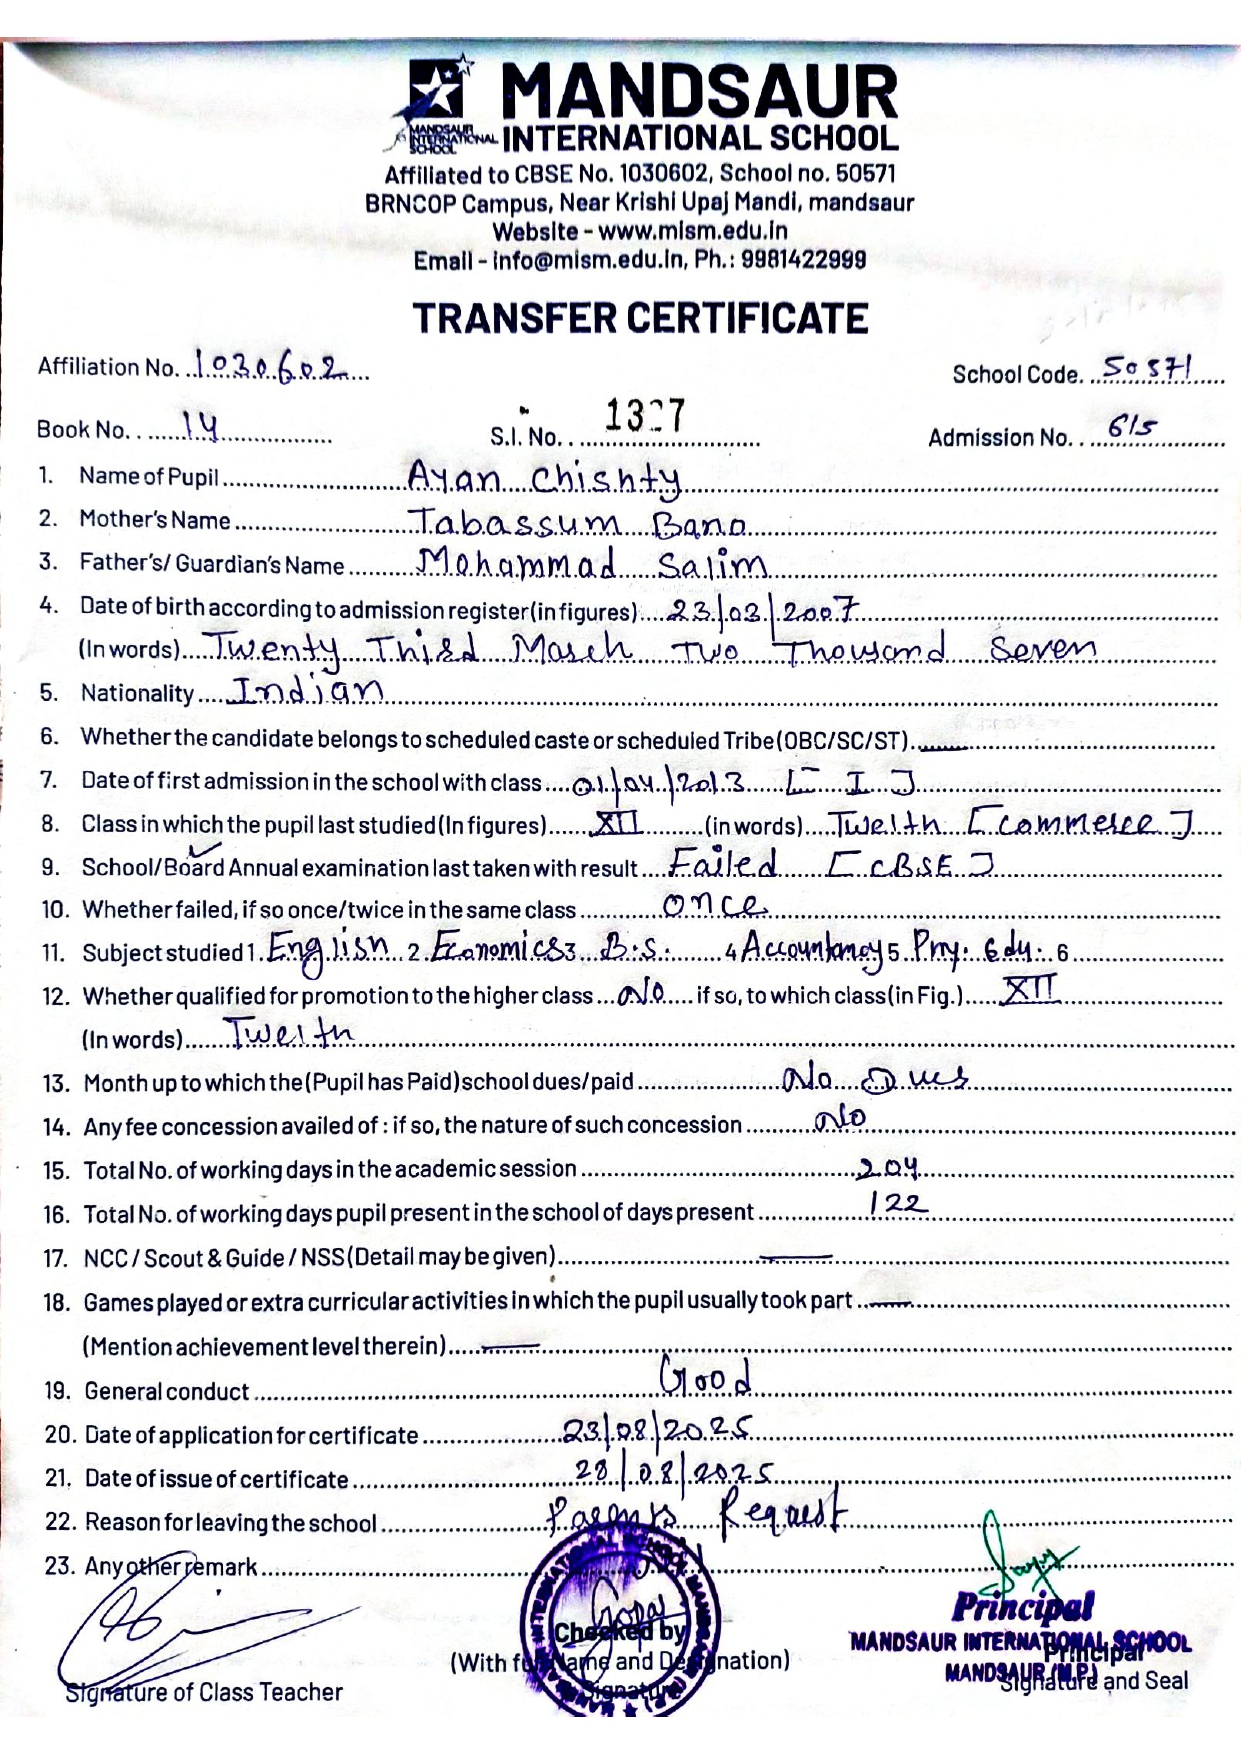 MANDSAUR
INTERNATIONAL SCHOOL
MANDSAUR
INTERNATIONAL
SCHOOL
Affiliated to CBSE No. 1030602, School no. 50571
BRNCOP Campus, Near Krishi Upaj Mandi, mandsaur
Website - www.mism.edu.in
Email - info@mism.edu.in, Ph.: 9981422999
TRANSFER CERTIFICATE
Affiliation No. 1030602 School Code. 50571
Book No. 14 S.I. No. Admission No. 615
1. Name of Pupil Ayan Chishty
2. Mother's Name Tabassum Bano
3. Father's/ Guardian's Name Mohammad Salim
4. Date of birth according to admission register(in figures) 23/03/2007
(In words) Twenty Third March Two Thousand Seven
5. Nationality Indian
6. Whether the candidate belongs to scheduled caste or scheduled Tribe(OBC/SC/ST)
7. Date of first admission in the school with class 01/04/2013 [ I ]
8. Class in which the pupil last studied(In figures) XII (in words) Twelth [Commerce]
9. School/Board Annual examination last taken with result Failed [CBSE]
10. Whether failed, if so once/twice in the same class once
11. Subject studied 1. English 2. Economics 3. B.S. 4 Accountancy 5. Phy. Edu. 6
12. Whether qualified for promotion to the higher class No if so, to which class(in Fig.) XII
(In words) Twelth
13. Month up to which the(Pupil has Paid)school dues/paid No Dues
14. Any fee concession availed of : if so, the nature of such concession No
15. Total No. of working days in the academic session 204
16. Total No. of working days pupil present in the school of days present 122
17. NCC / Scout & Guide / NSS(Detail may be given)
18. Games played or extra curricular activities in which the pupil usually took part
(Mention achievement level therein)
19. General conduct Good
20. Date of application for certificate 23/08/2025
21. Date of issue of certificate 28/08/2025
22. Reason for leaving the school Parents Request
23. Any other remark
Principal
Checked by
MANDSAUR INTERNATIONAL SCHOOL
Principal
(With full Name and Designation)
MANDSAUR (M.P.)
Signature and Seal
Signature of Class Teacher
Signature